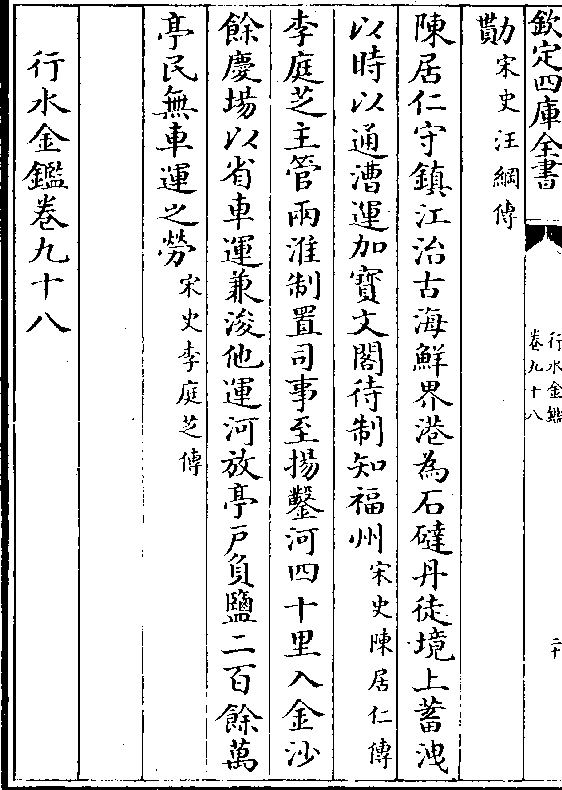 欽定四庫全書
行水金鑑
卷九十八
二十
勩宋史汪綱傳
陳居仁守鎮江治古海鮮界港為石䃮丹徒境上蓄洩
以時以通漕運加寶文閣待制知福州宋史陳居仁傳
李庭芝主管兩淮制置司事至揚鑿河四十里入金沙
餘慶場以省車運兼浚他運河放亭戶負鹽二百餘萬
亭民無車運之勞宋史李庭芝傳
行水金鑑卷九十八